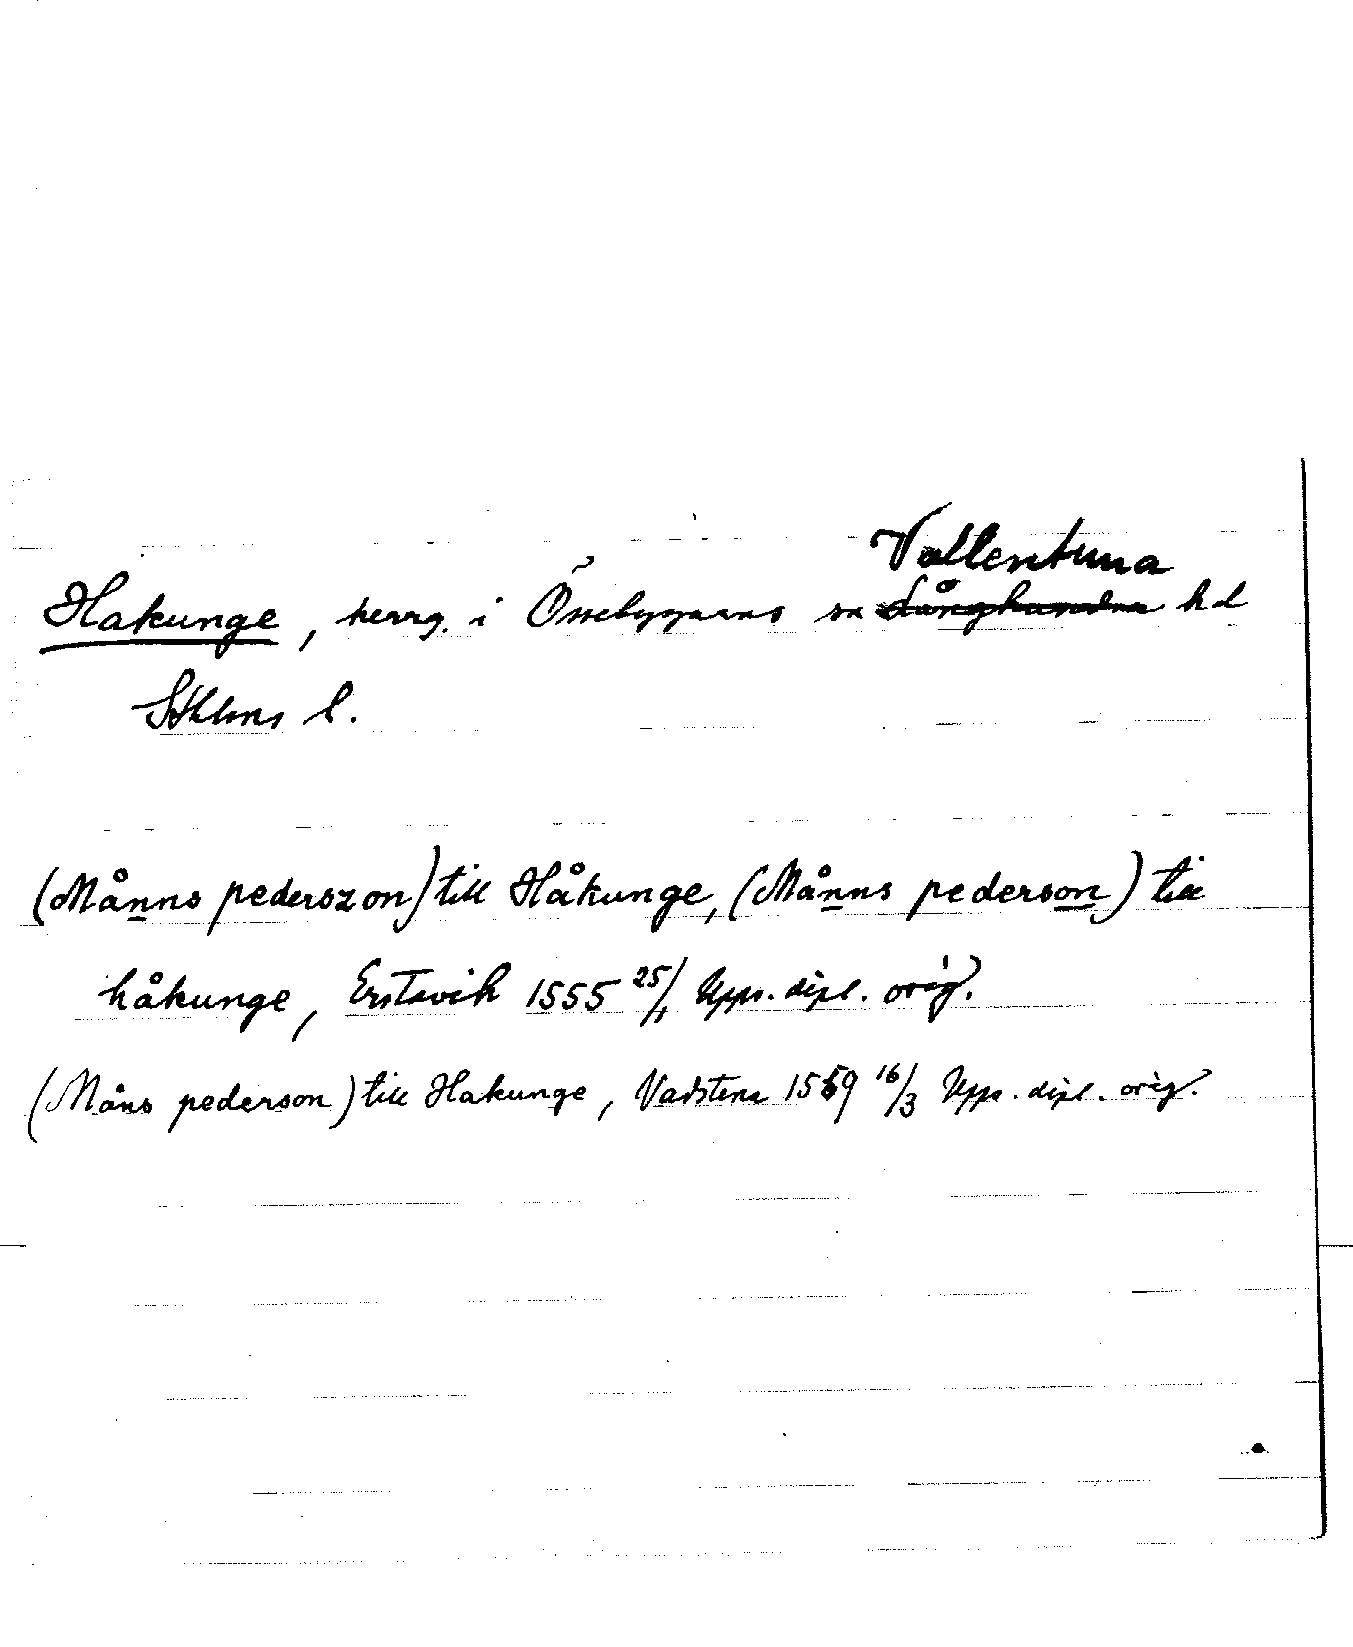 Vallentuna
Hakunge, herrg. i Össebygarns sn Långhundra hd
Sthlms l.
(Månns pederszon) till Håkunge, (Månns pederson) till
håkunge, Erstavik 1555 25/1 Upps. dipl. orig.
(Måns pederson) till Hakunge, Vadstena 1559 16/3 Upps. dipl. orig.